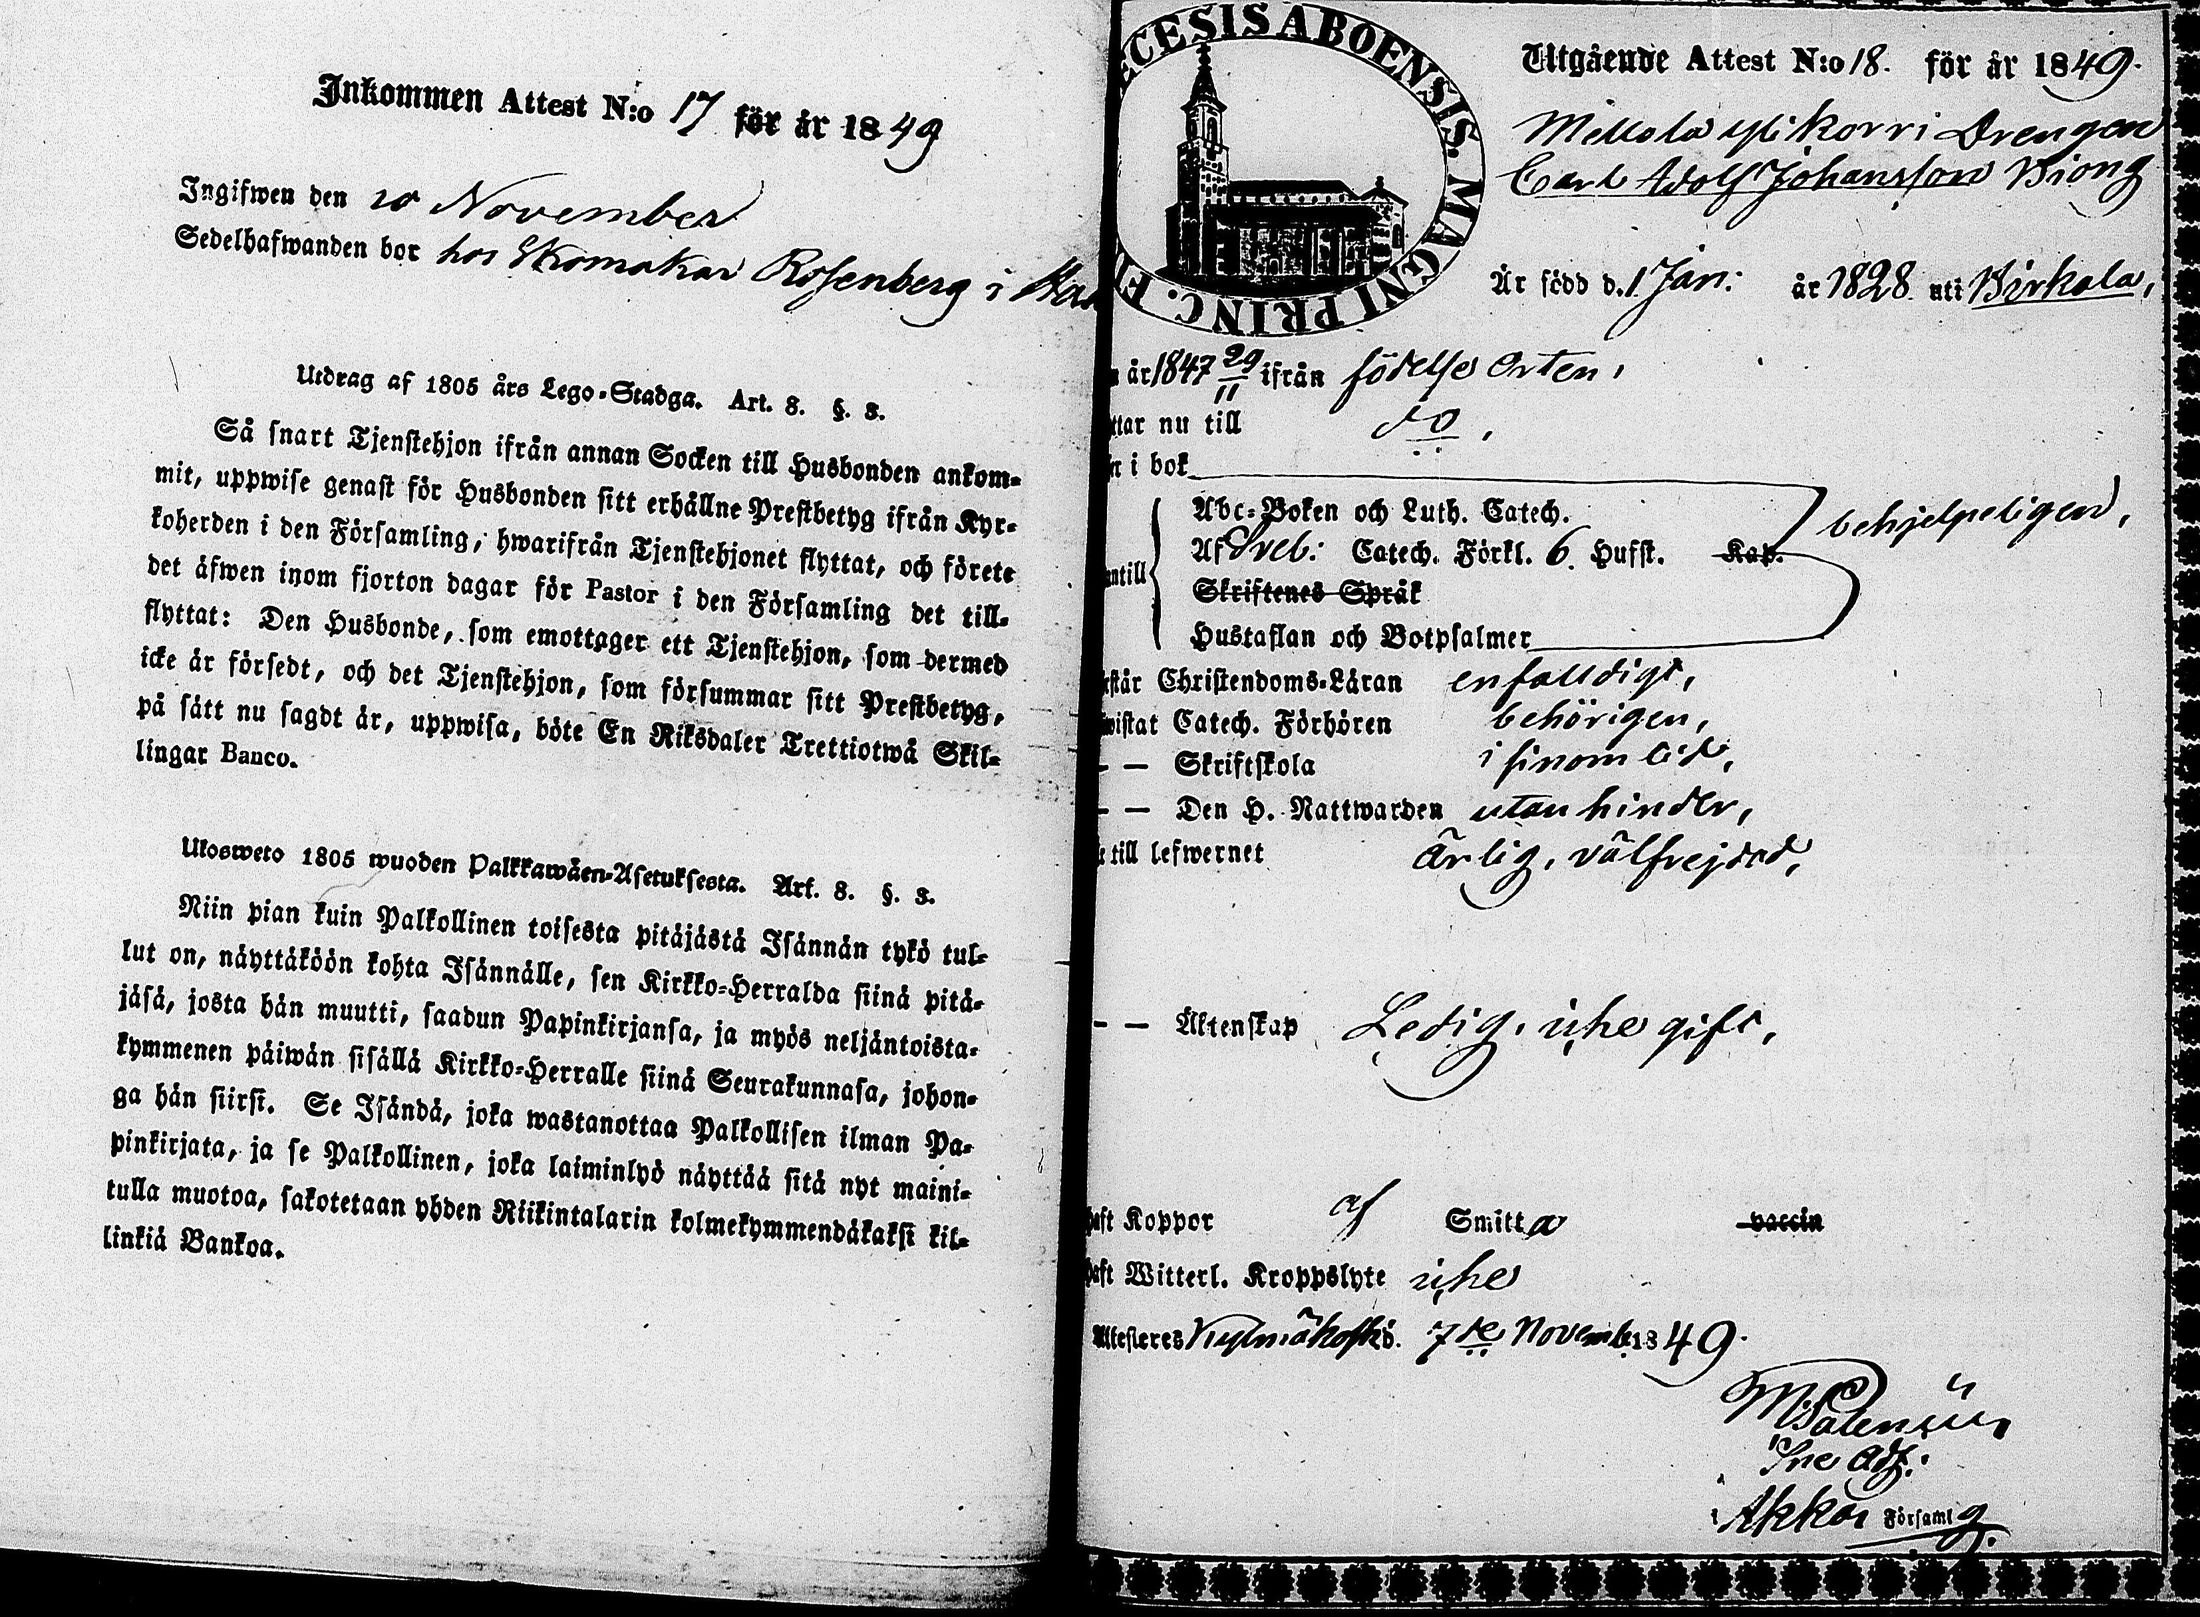 Inkommen Attest N:o 17 för år 1849
Ingifwen den 10 November
Sedelhafwanden bor hos Skomakar Rosenberg i
Utdrag af 1805 års Lego-Stadga. Art. 8. §. 3.
Så snart Tjenstehjon ifrån annan Socken till Husbonden ankom-
mit, uppwise genast för Husbonden sitt erhållne Prestbetyg ifrån Kyr-
koherden i den Församling, hwarifrån Tjenstehjonet flyttat, och förete
det äfwen inom fjorton dagar för Pastor i den Församling det till-
flyttat: Den Husbonde, som emottager ett Tjenstehjon, som dermed
icke är försedt, och det Tjenstehjon, som försummar sitt Prestbetyg,
på sätt nu sagdt är, uppwisa, böte En Riksdaler Trettiotwå Skil-
lingar Banco.
Ulosweto 1805 wuoden Palkkawäen-Asetuksesta. Art. 8. §. 3.
Niin pian kuin Palkollinen toisesta pitäjästä Isännän tykö tul-
lut on, näyttäköön kohta Isännälle, sen Kirkko-Herralda siinä pitä-
jäsä, josta hän muutti, saadun Papinkirjansa, ja myös neljäntoista-
kymmenen päiwän sisällä Kirkko-Herralle siinä Seurakunnasa, johon-
ga hän siirsi. Se Isändä, joka wastanottaa Palkollisen ilman Pa-
pinkirjata, ja se Palkollinen, joka laiminlyö näyttää sitä nyt maini-
tulla muotoa, sakotetaan yhden Riikintalarin kolmekymmendäkaksi kil-
linkiä Bankoa.
CESIS ABOENSIS. MAGNI PRINC. F
Utgående Attest N:o 18. för år 1849.
Mellola yli korri Drengen
Carl Adolf Johansson Biong
Är född d. 1 Jan: år 1828 uti Birkala,
n år 1847 29/11 ifrån födelse Orten,
ttar nu till do,
er i bok
Abc-Boken och Luth. Catech.
behjelpeligen,
Af Sveb: Catech. Förkl. 6. Hufst. Kap.
antill
Skriftenes Språk
Hustaflan och Botpsalmer
rstår Christendoms-Läran enfaldigt,
wistat Catech. Förhören behörigen,
— — Skriftskola i sinom tid,
— — Den H. Nattwarden utan hinder,
e till lefwernet ärlig, välfrejdad,
— — Äktenskap Ledig, icke gift,
haft Koppor af Smitta vaccin
haft Witterl. Kroppslyte icke
Attesteres Kylmäkoski d. 7de Novemb. 1849.
Vice Adj:
i Akkas Församlg.